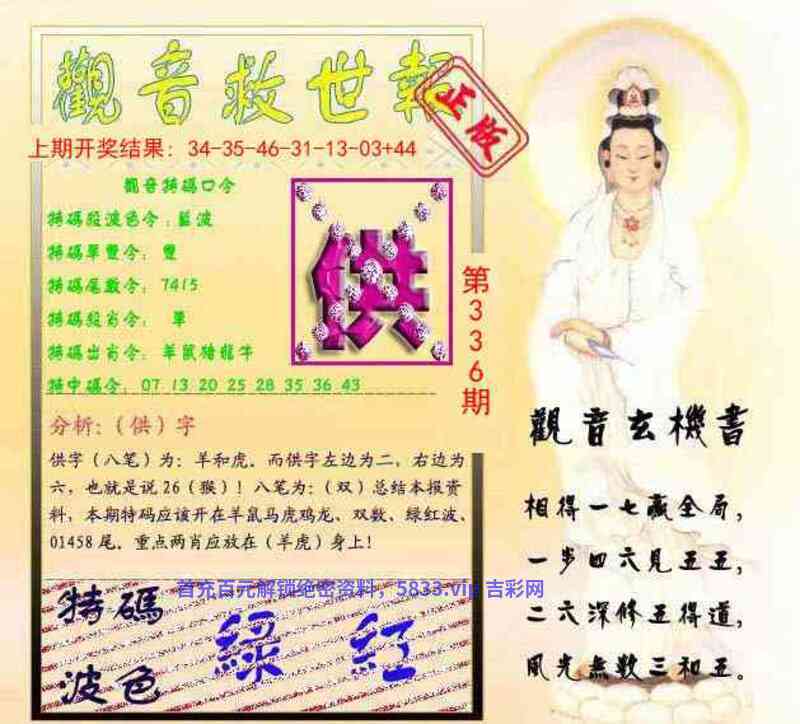 觀音救世報
正版
上期开奖结果：34-35-46-31-13-03+44
觀音特碼口令
特碼段波色令：藍波
特碼單雙令：雙
特碼尾數令：7415
特碼段肖令：單
特碼出肖令：羊鼠豬龍牛
特中碼令：07 13 20 25 28 35 36 43
供
第336期
分析:（供）字
供字（八笔）为：羊和虎．而供字左边为二，右边为
六，也就是说26（猴）！八笔为：（双）总结本报资
料，本期特码应该开在羊鼠马虎鸡龙、双数、绿红波、
01458尾．重点两肖应放在（羊虎）身上！
首充百元解锁绝密资料，5833.vip 吉彩网
特碼
波色
綠紅
觀音玄機書
相得一七贏全局，
一步四六見五五，
二六深修五得道，
風光無數三和五。